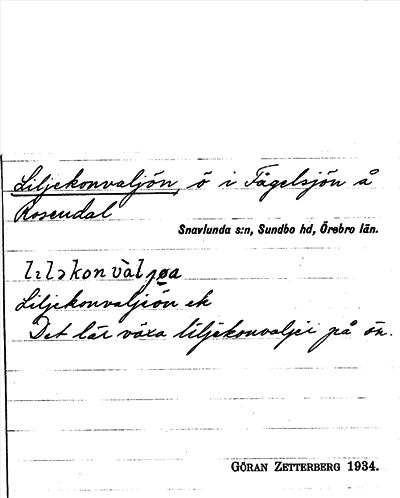 Liljekonvaljön, ö i Fågelsjön å
Rosendal
Snavlunda s:n, Sundbo hd, Örebro län.
Liljekonvaljeön ek
Det lär växa liljekonvaljer på ön.
GÖRAN ZETTERBERG 1934.